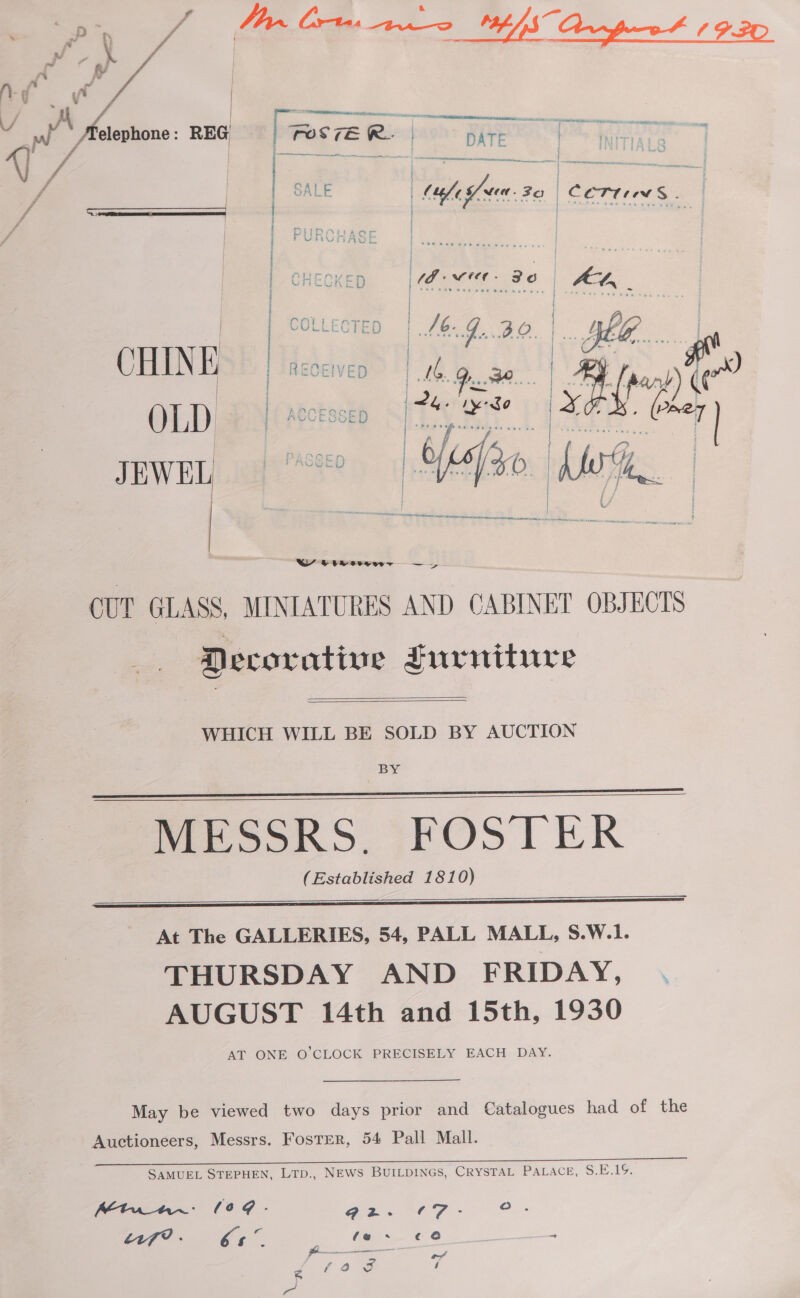 14/15 August 1930
Telephone: REG
FOSTER. DATE INITIALS
SALE
PURCHASE
CHECKED 30
COLLECTED 16.9.30.
RECEIVED 16.9.30 (part)
ACCESSED
PASSED
CHINE
OLD
JEWEL
CUT GLASS, MINIATURES AND CABINET OBJECTS
Decorative Furniture
WHICH WILL BE SOLD BY AUCTION
BY
MESSRS. FOSTER
(Established 1810)
At The GALLERIES, 54, PALL MALL, S.W.1.
THURSDAY AND FRIDAY,
AUGUST 14th and 15th, 1930
AT ONE O'CLOCK PRECISELY EACH DAY.
May be viewed two days prior and Catalogues had of the
Auctioneers, Messrs. FOSTER, 54 Pall Mall.
SAMUEL STEPHEN, LTD., NEWS BUILDINGS, CRYSTAL PALACE, S.E.19.
109. 92. 17. 0.